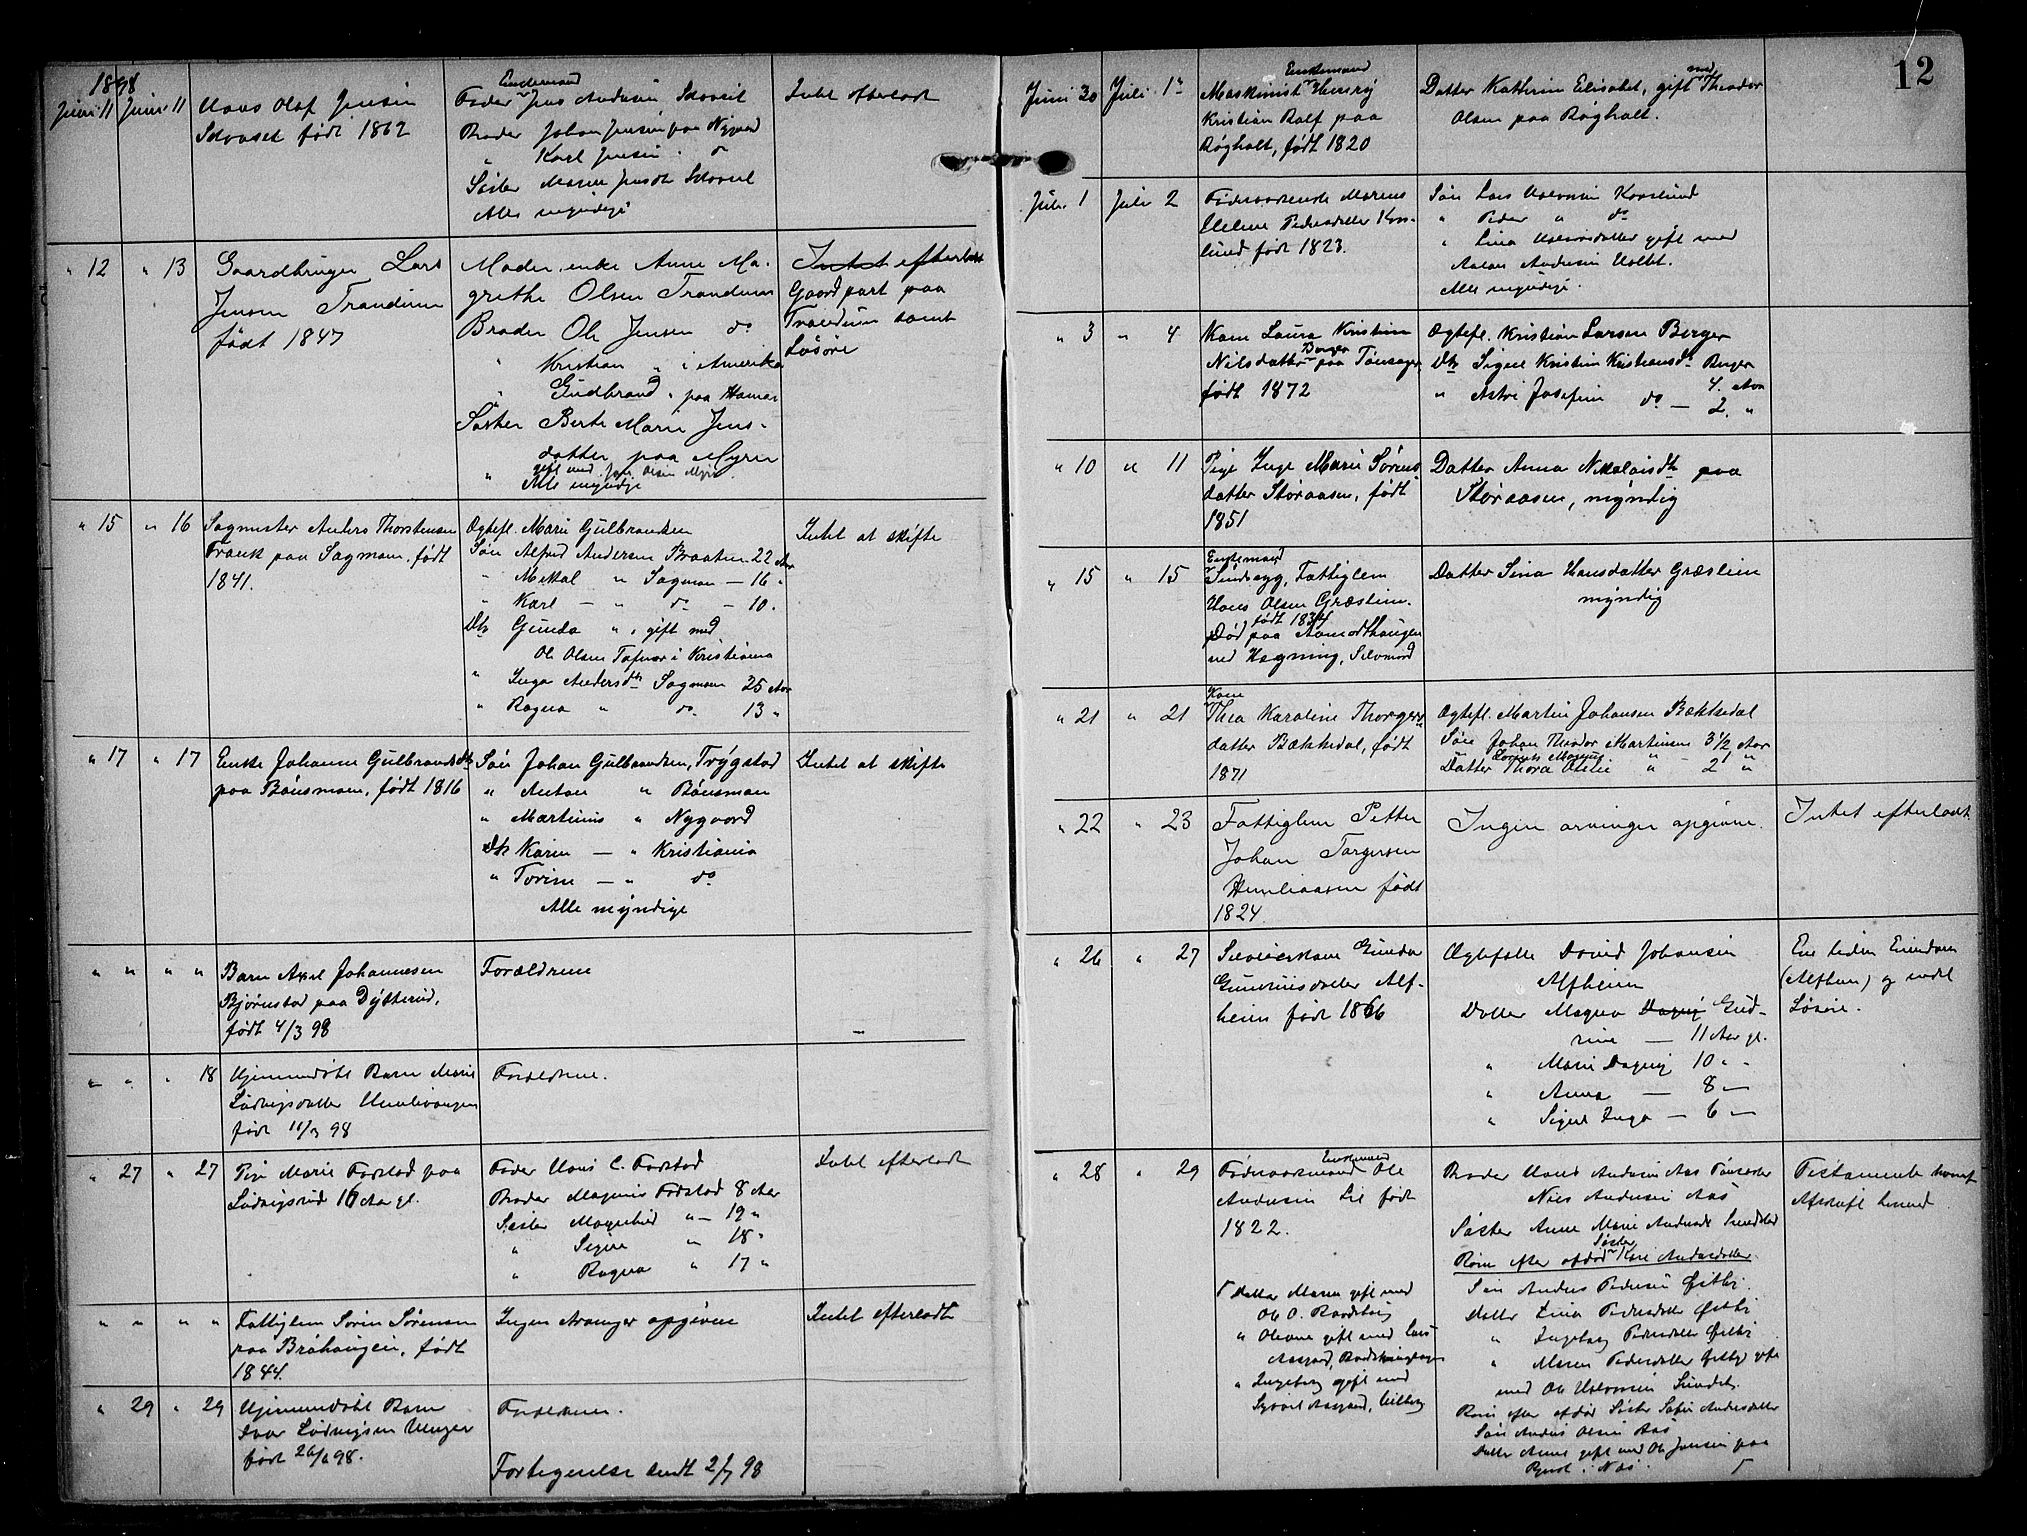 12
1898
Juni 11 Juni 11
Hans Olaf Jensen
født 1862
Enkemand
Fader Jens Andersen
Broder Johan Jensen paa Nygaard
" Karl Jensen do
Søster Maren Jensdt
Alle myndige
Intet efterladt
" 12 " 13
Gaardbruger Lars
Jensen Trandum
født 1847
Moder, enke Anne Ma-
grethe Olsen Trandum
Broder Ole Jensen do
" Kristian " i Amerika
" Gudbrand " paa Hamar
Søster Berte Marie Jens-
datter paa Myren
gift med Jens Olsen Myren
" Alle myndige
Intet efterladt
Gaardpart paa
Trandum samt
Løsøre
" 15 " 16
Sagmester Anders Thorstensen
Frank paa Sagmoen, født
1841.
Ægtefl. Marie Gulbrandsen
Søn Alfred Andersen Braaten 22 Aar
" Mikal " Sagmoen — 16 "
" Karl — " do — 10 "
Dtr Gunda " , gift med
Ole Olsen i Kristiania
" Inga Andersdtr Sagmoen 25 Aar
" Ragna " do 13 "
Intet at skifte
" 17 " 17
Enke Johanne Gulbrandsdtr
paa Bønsmoen, født 1816
Søn Johan Gulbrandsen, Trygstad
" Anton " Bønsmoen
" Martinus " Nygaard
Dtr Karen — " Kristiania
" Torine — " do
Alle myndige
Intet at skifte
" " " "
Barn Axel Johannesen
Bjørnstad paa Dytterud,
født 4/3 98
Forældrene
—
" " " 18
Hjemmedøbt Barn Marie
Ludvigsdatter
født 11/3 98
Forældrene.
" 27 " 27
Pige Marie Forstad paa
Ludvigsrud 16 Aar gl.
Fader Hans C. Forstad
Broder Magnus Forstad 8 Aar
Søster Magnhild " — 19 "
" Signe " 18 "
" Ragna " 17 "
Intet efterladt
" " " "
Fattiglem Søren Sørensen
paa Bråhaugen, født
1844.
Ingen Arvinger opgivne
Intet efterladt
" 29 " 29
Hjemmedøbt Barn
Ivar Ludvigsen
født 26/6 98.
Forældrene.
Fortegnelse sendt 2/7 98
Juni 30 Juli 1
Enkemand
Maskinist Henry
Kristian Rolf paa
Røgholt, født 1820
Datter Kathrine Elisabet, gift med Theodor
Olsen paa Røgholt.
Juli 1 Juli 2
Føderaadsenke Maren
Helene Pedersdatter Kors-
lund født 1823.
Søn Lars Halvorsen Korslund
" Peder " do
" Lina Halvorsdatter gift med
Anton Andersen
Alle myndige.
" 3 " 4
Kone Laura Kristine
Nilsdatter Berger paa Tønsager
født 1872
Ægtefl. Kristian Larsen Berger
Dtr Signe Kristine Kristiansdtr Berger
4 Aar
" Astri Josefine do — 2 "
" 10 " 11
Pige Inge Marie Sørens-
datter Støraasen, født
1851
Datter Anna Nikolaisdtr paa
Støraasen, myndig
" 15 " 15
Enkemand
Sindssyg, Fattiglem
Hans Olsen Græslien.
født 1834
Død paa Aamodthaugen
ved Hægning, Selvmord
Datter Sina Hansdatter Græslien
myndig
" 21 " 21
Kone
Thea Karoline Thorgers-
datter Bækkedal, født
1871
Ægtefl. Martin Johansen Bækkedal
Søn Johan Theodor Martinsen 3 1/2 Aar
Datter Thora Otilie " — 2 "
" 22 " 23
Fattiglem Petter
Johan Torgersen
Humliaasen født
1824.
Ingen arvinger opgivne.
Intet efterladt
" 26 " 27
Selveierkone Gunda
Gunerinsdatter Alf-
heim født 1866
Ægtefælle David Johansen
Alfheim
Datter Magna Dagny Gud-
rine — 11 Aar gl.
" Marie Dagny 10 "
" Anna — 8 —
" Signe Inga — 6 —
En liden Eiendom
(Alfheim) og endel
Løsøre.
" 28 " 29
Enkemand
Føderaadsmand Ole
Andersen Lie født
1822.
Broder Hans Andersen Aas
Niels Andersen Aas
Søster Anne Marie Andersdt
Børn efter afdød Søster Kari Andersdatter.
Søn Anders Pedersen Østby
Datter Lina Pedersdatter Østby
" Ingeborg Pedersdatter Østby
" Maren Pedersdatter Østby gift
med Ole Halvorsen Sundby.
Børn efter afdød Søster Sofie Andersdatter
Søn Anders Olsen Aas
Datter Anne gift med Ole Jensen paa
i Næs.
Datter Maren gift med
Ole O.
" Oleane gift med Lars
Aasgaard,
" Ingeborg gift med
Sigvart Aasgaard,
Testamente
Afskrift herved